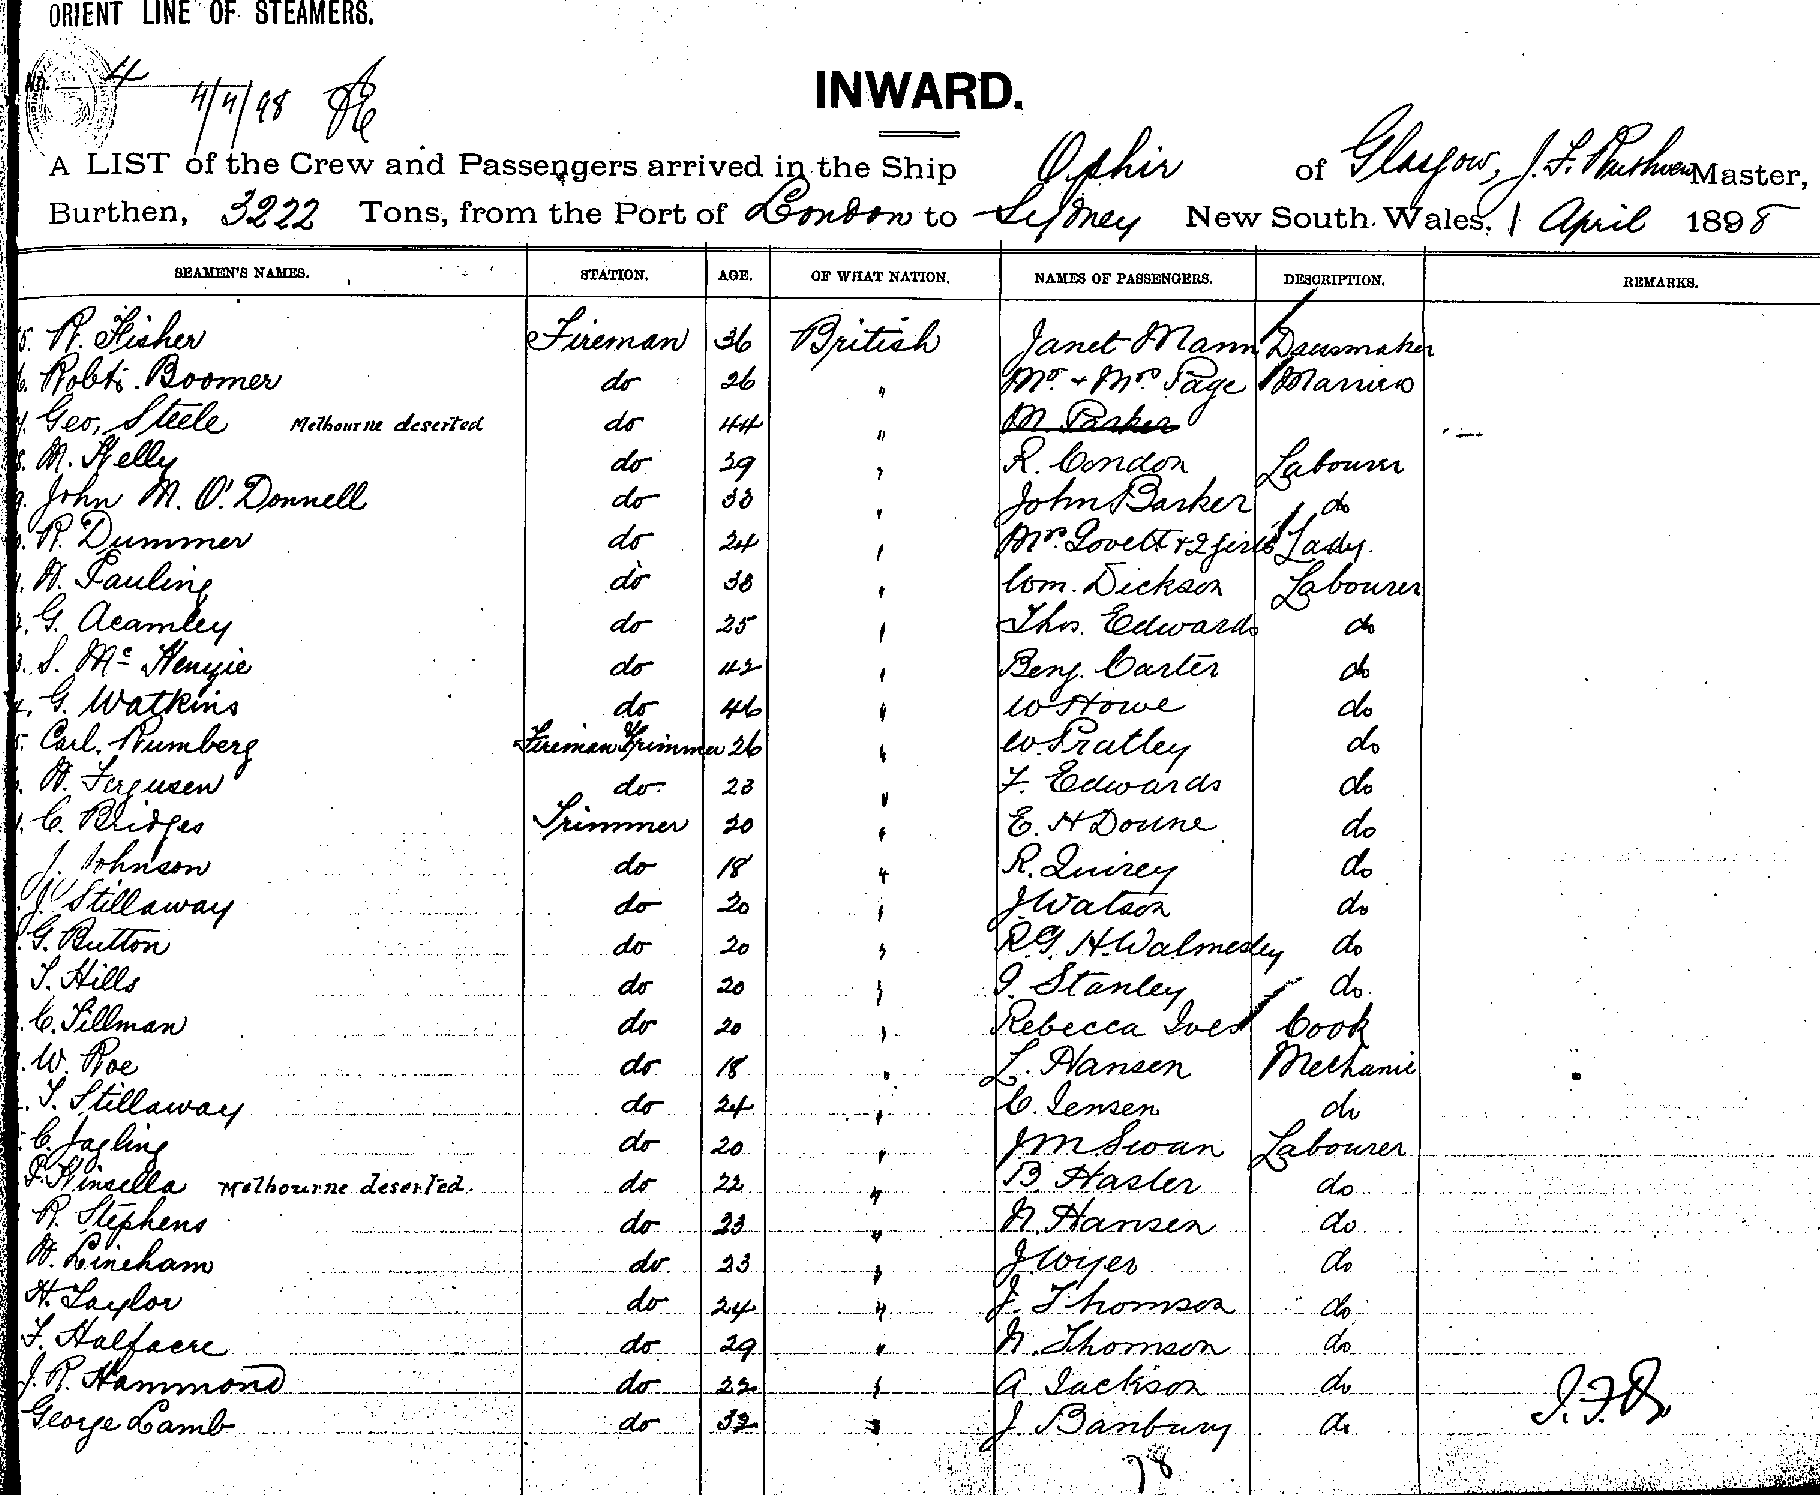 ORIENT LINE OF STEAMERS.
No. 4
4/4/98
INWARD.
A LIST of the Crew and Passengers arrived in the Ship Ophir of Glasgow, J. F. Ruthven Master,
Burthen, 3222 Tons, from the Port of London to Sydney New South Wales, 1 April 1898
SEAMEN'S NAMES. STATION. AGE. OF WHAT NATION. NAMES OF PASSENGERS. DESCRIPTION. REMARKS.
5. R. Fisher Fireman 36 British Janet Mann Dressmaker
6. Robt. Boomer do 26 " Mr. + Mrs Page Married
7. Geo. Steele Melbourne deserted do 44 " M. Parker
8. M. Kelly do 39 " R. Condon Labourer
9. John M. O'Donnell do 33 " John Barker do
R. Dummer do 24 " Mrs. Lovett + 2 girls Lady.
H. Pauling do 38 " Wm. Dickson Labourer
G. Acamley do 25 " Thos. Edwards do
S. Mc Kenzie do 42 " Benj. Carter do
G. Watkins do 46 " W Howe do
Carl. Rumberg Fireman Trimmer 26 " W. Pratley do
H. Fergusen do 23 " F. Edwards do
C. Bridges Trimmer 20 " E. H Doune do
J. Johnson do 18 " R. Quirey do
J. Stillaway do 20 " J Watson do
G. Button do 20 " R. G. H. Walmesley do
T. Hills do 20 " I. Stanley do.
C. Tillman do 20 " Rebecca Ives Cook
W. Roe do 18 " L. Hansen Mechanic
T. Stillaway do 24 " C. Jensen do
C. Jagling do 20 " J M Swan Labourer
P. Kinsella Melbourne deserted. do 22 " B. Hasler do
R. Stephens do 23 " N. Hansen do
H. Lineham do 23 " J Wyer do
H. Taylor do 24 " J. Thomson do
F. Halfacre do 29 " N. Thomson do
J. R. Hammond do 22 " A Jackson do
George Lamb do 32 " J. Banbury do
J. F. R.
78